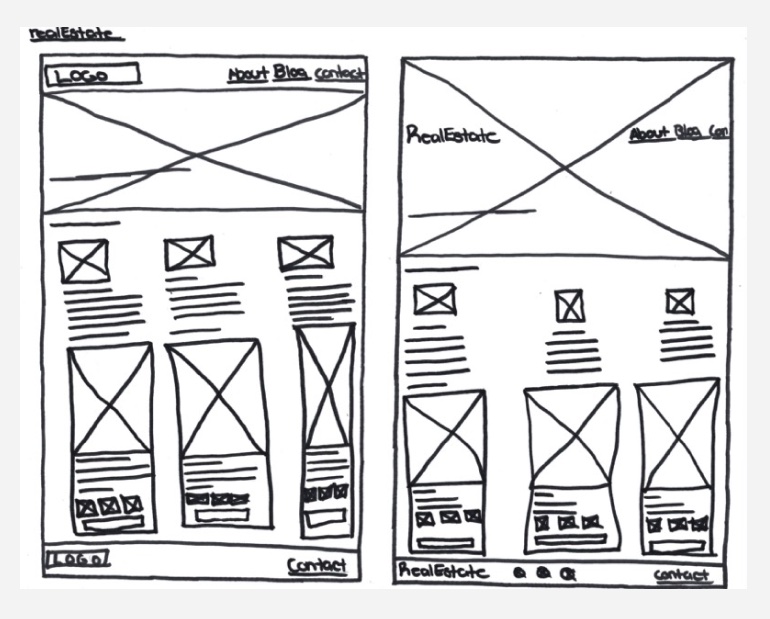 realEstate
LOGO About Blog contact
LOGO Contact
RealEstate About Blog Con
RealEstate contact